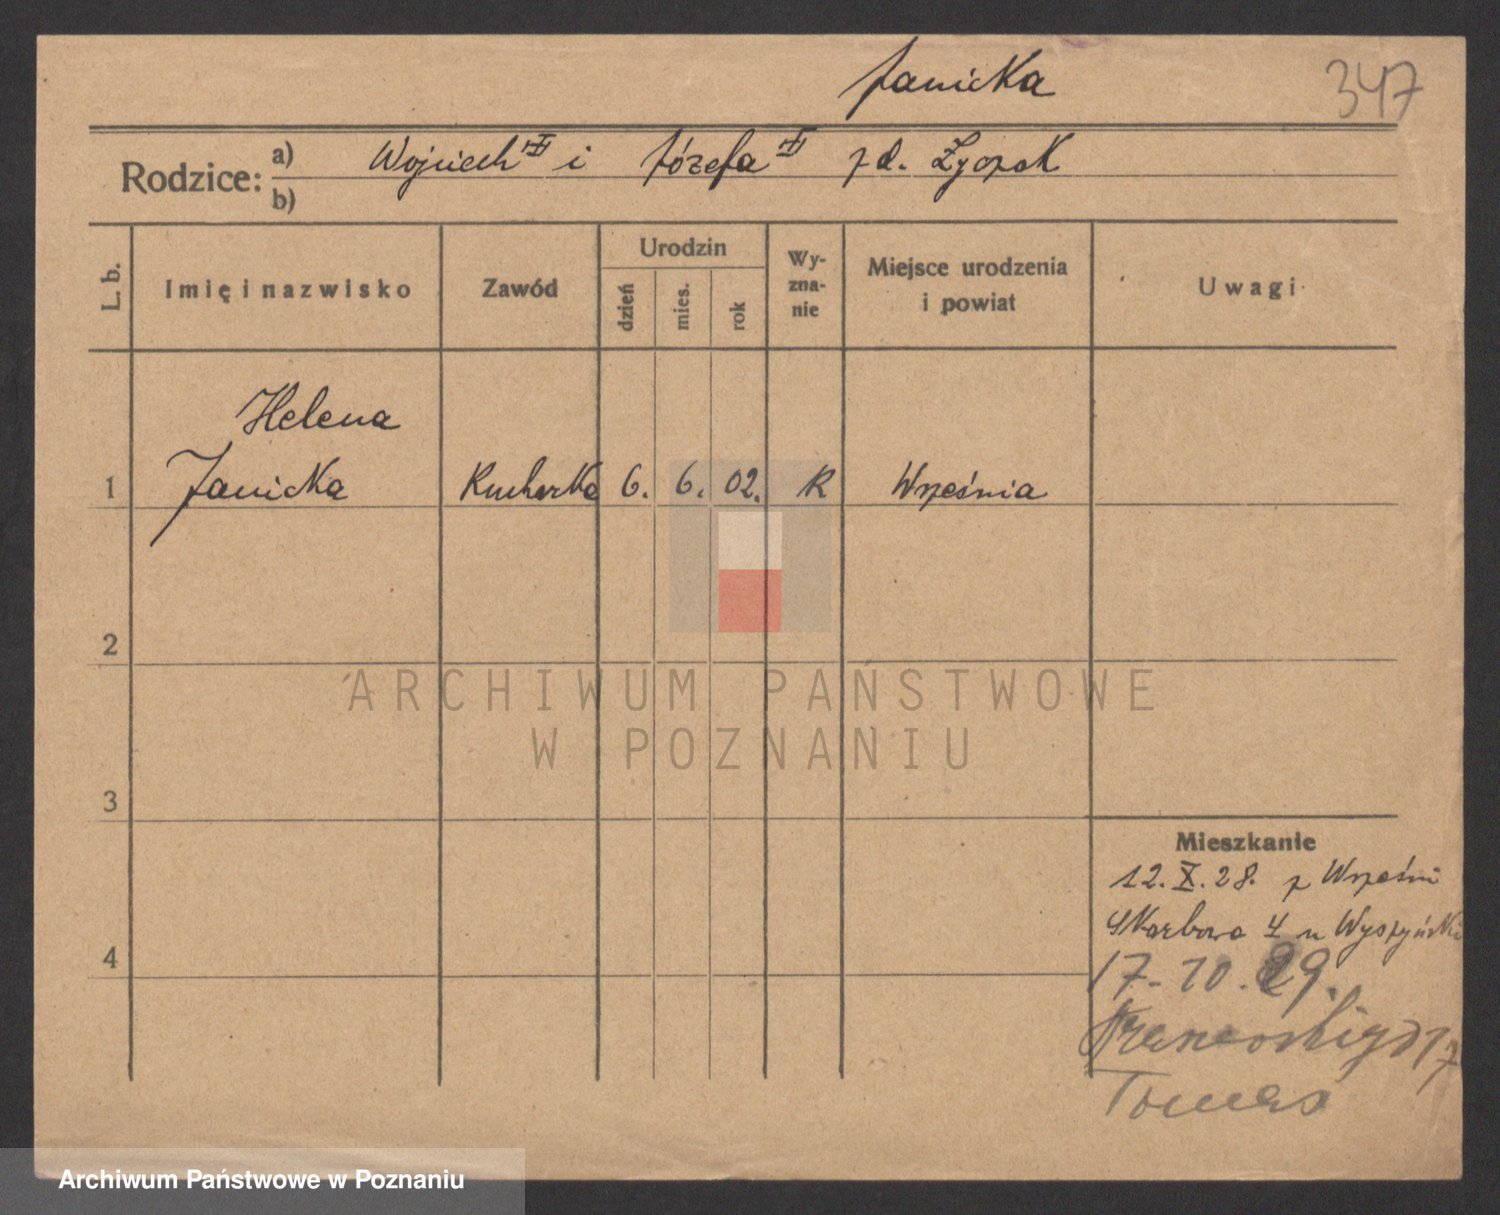 Janicka
347
Rodzice: a) Wojciech i Józefa z d.
b)
L. b.
Imię i nazwisko
Zawód
Urodzin
dzień
mies.
rok
Wy-
zna-
nie
Miejsce urodzenia
i powiat
Uwagi
Helena
1 Janicka Kucharka 6. 6. 02. R Września
2
ARCHIWUM PAŃSTWOWE
W POZNANIU
3
Mieszkanie
12.X.28. z Wrześni
Skarbowa 4 u Wyszyński
4
17.10.29.
17
Archiwum Państwowe w Poznaniu